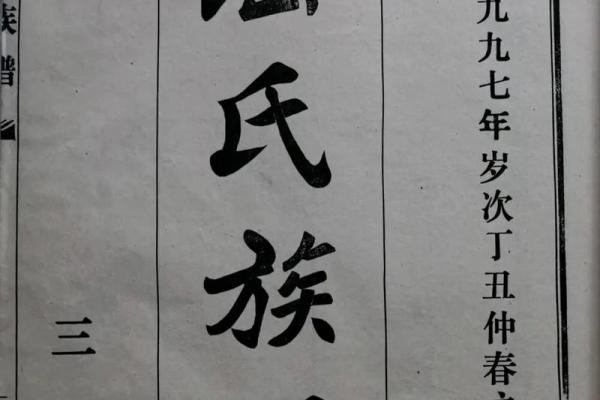 九九七年岁次丁丑仲春
氏族
三
族譜